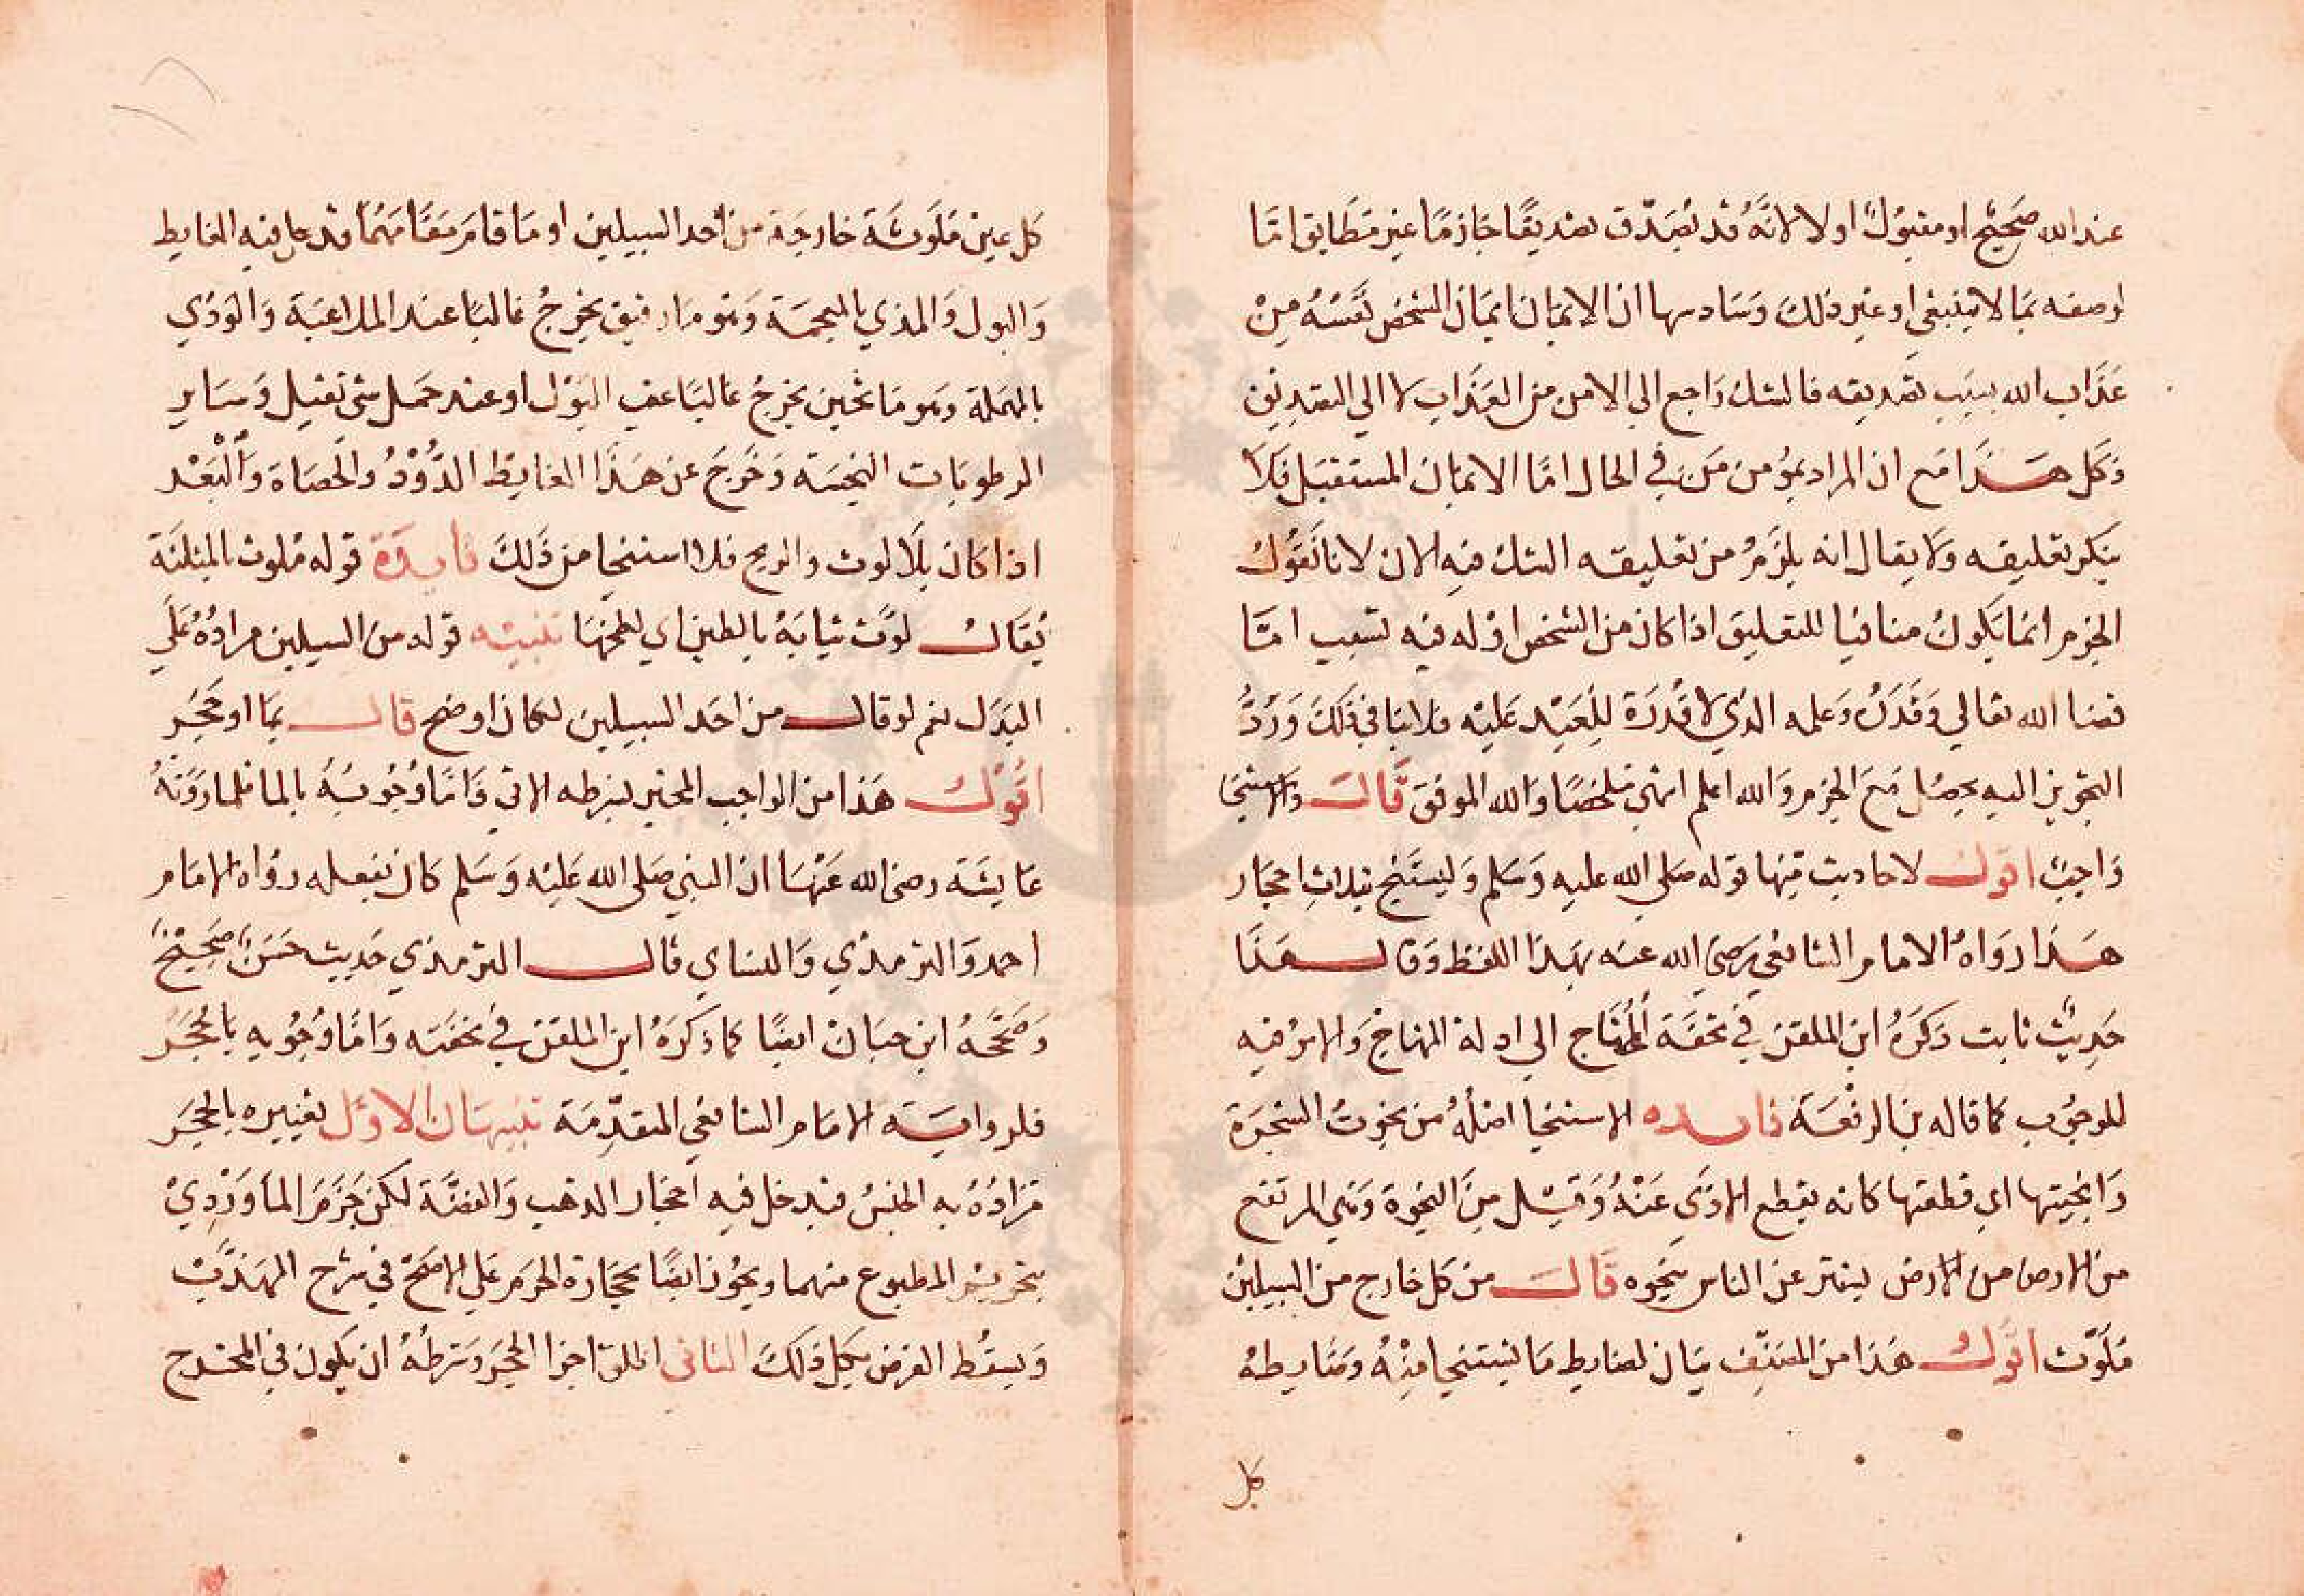 عند الله صحيح او مقبول او لا لانه قد يصدق تصديقا جازما غير مطابق اما
لوصفه بما لا ينبغي او غير ذلك وسادسها ان الايمان ايمان الشخص نفسه من
عذاب الله بسبب تصديقه فالشك راجع الي الامن من العذاب لا الي التصديق
وكل هذا مع ان المراد بمؤمن من في الحال اما الايمان المستقبل فلا
ينكر تعليقه ولا يقال انه يلزم من تعليقه الشك فيه الان لانا نقول
الجزم انما يكون منافيا للتعليق اذا كان من الشخص او له فيه تسبب اما
قضا الله تعالي وقدره وعلمه الذي لا قدرة للعبد عليه فلا ينافي ذلك ورد
التجويز اليه يحصل مع الجزم والله اعلم انتهي ملخصا والله الموفق قال والاستنجا
واجب اقول لاحاديث منها قوله صلي الله عليه وسلم وليستنج بثلاث احجار
هذا رواه الامام الشافعي رضي الله عنه بهذا اللفظ وقال هذا
حديث ثابت ذكره ابن الملقن في تحفة المحتاج الي ادلة المنهاج والامر فيه
للوجوب كما قاله بن الرفعة فايده الاستنجا اصله من نجوت الشجرة
وانجيتها اي قطعتها كانه يقطع الاذي عنه وقيل من النجوة وهي المرتفع
من الارض من الارض ليستتر عن الناس بنجوه قال من كل خارج من السبيلين
ملوث اقول هذا من المصنف بيان لضابط ما يستنجا منه وضابطه
كل
كل عين ملوثة خارجة من احد السبيلين او ما قام مقامهما فدخل فيه الغايط
والبول والمذي بالمعجمة وهو ما رقيق يخرج غالبا عند الملاعبة والودي
بالمهملة وهو ما ثخين يخرج غالبا عقب البول او عند حمل شي ثقيل وساير
الرطوبات النجسة وخرج عن هذا الغايط الدود والحصاة والبعر
اذا كان بلا لوث والريح فلا استنجا من ذلك فايدة قوله ملوث بالمثلثة
يقال لوث ثيابه بالطين اي لطخها تنبيه قوله من السبيلين مراده علي
البدل نعم لو قال من احد السبيلين لكان اوضح قال بما او حجر
اقول هذا من الواجب المخير بشرطه الاتي واما وجوبه بالما فلما روته
عايشة رضي الله عنها ان النبي صلي الله عليه وسلم كان يفعله رواه الامام
احمد والترمذي والنساي قال الترمذي حديث حسن صحيح
وصححه ابن حبان ايضا كما ذكره ابن الملقن في تحفته واما وجوبه بالحجر
فلرواية الامام الشافعي المتقدمة تنبيهان الاول تعبيره بالحجر
مراده به الجنس فيدخل فيه احجار الذهب والفضة لكن جزم الماوردي
بتحريم المطبوع منهما ويجوز ايضا بحجارة الحرم علي الاصح في شرح المهذب
ويسقط الفرض بكل ذلك الثاني اطلق اجزا الحجر وشرطه ان يكون في المخرج